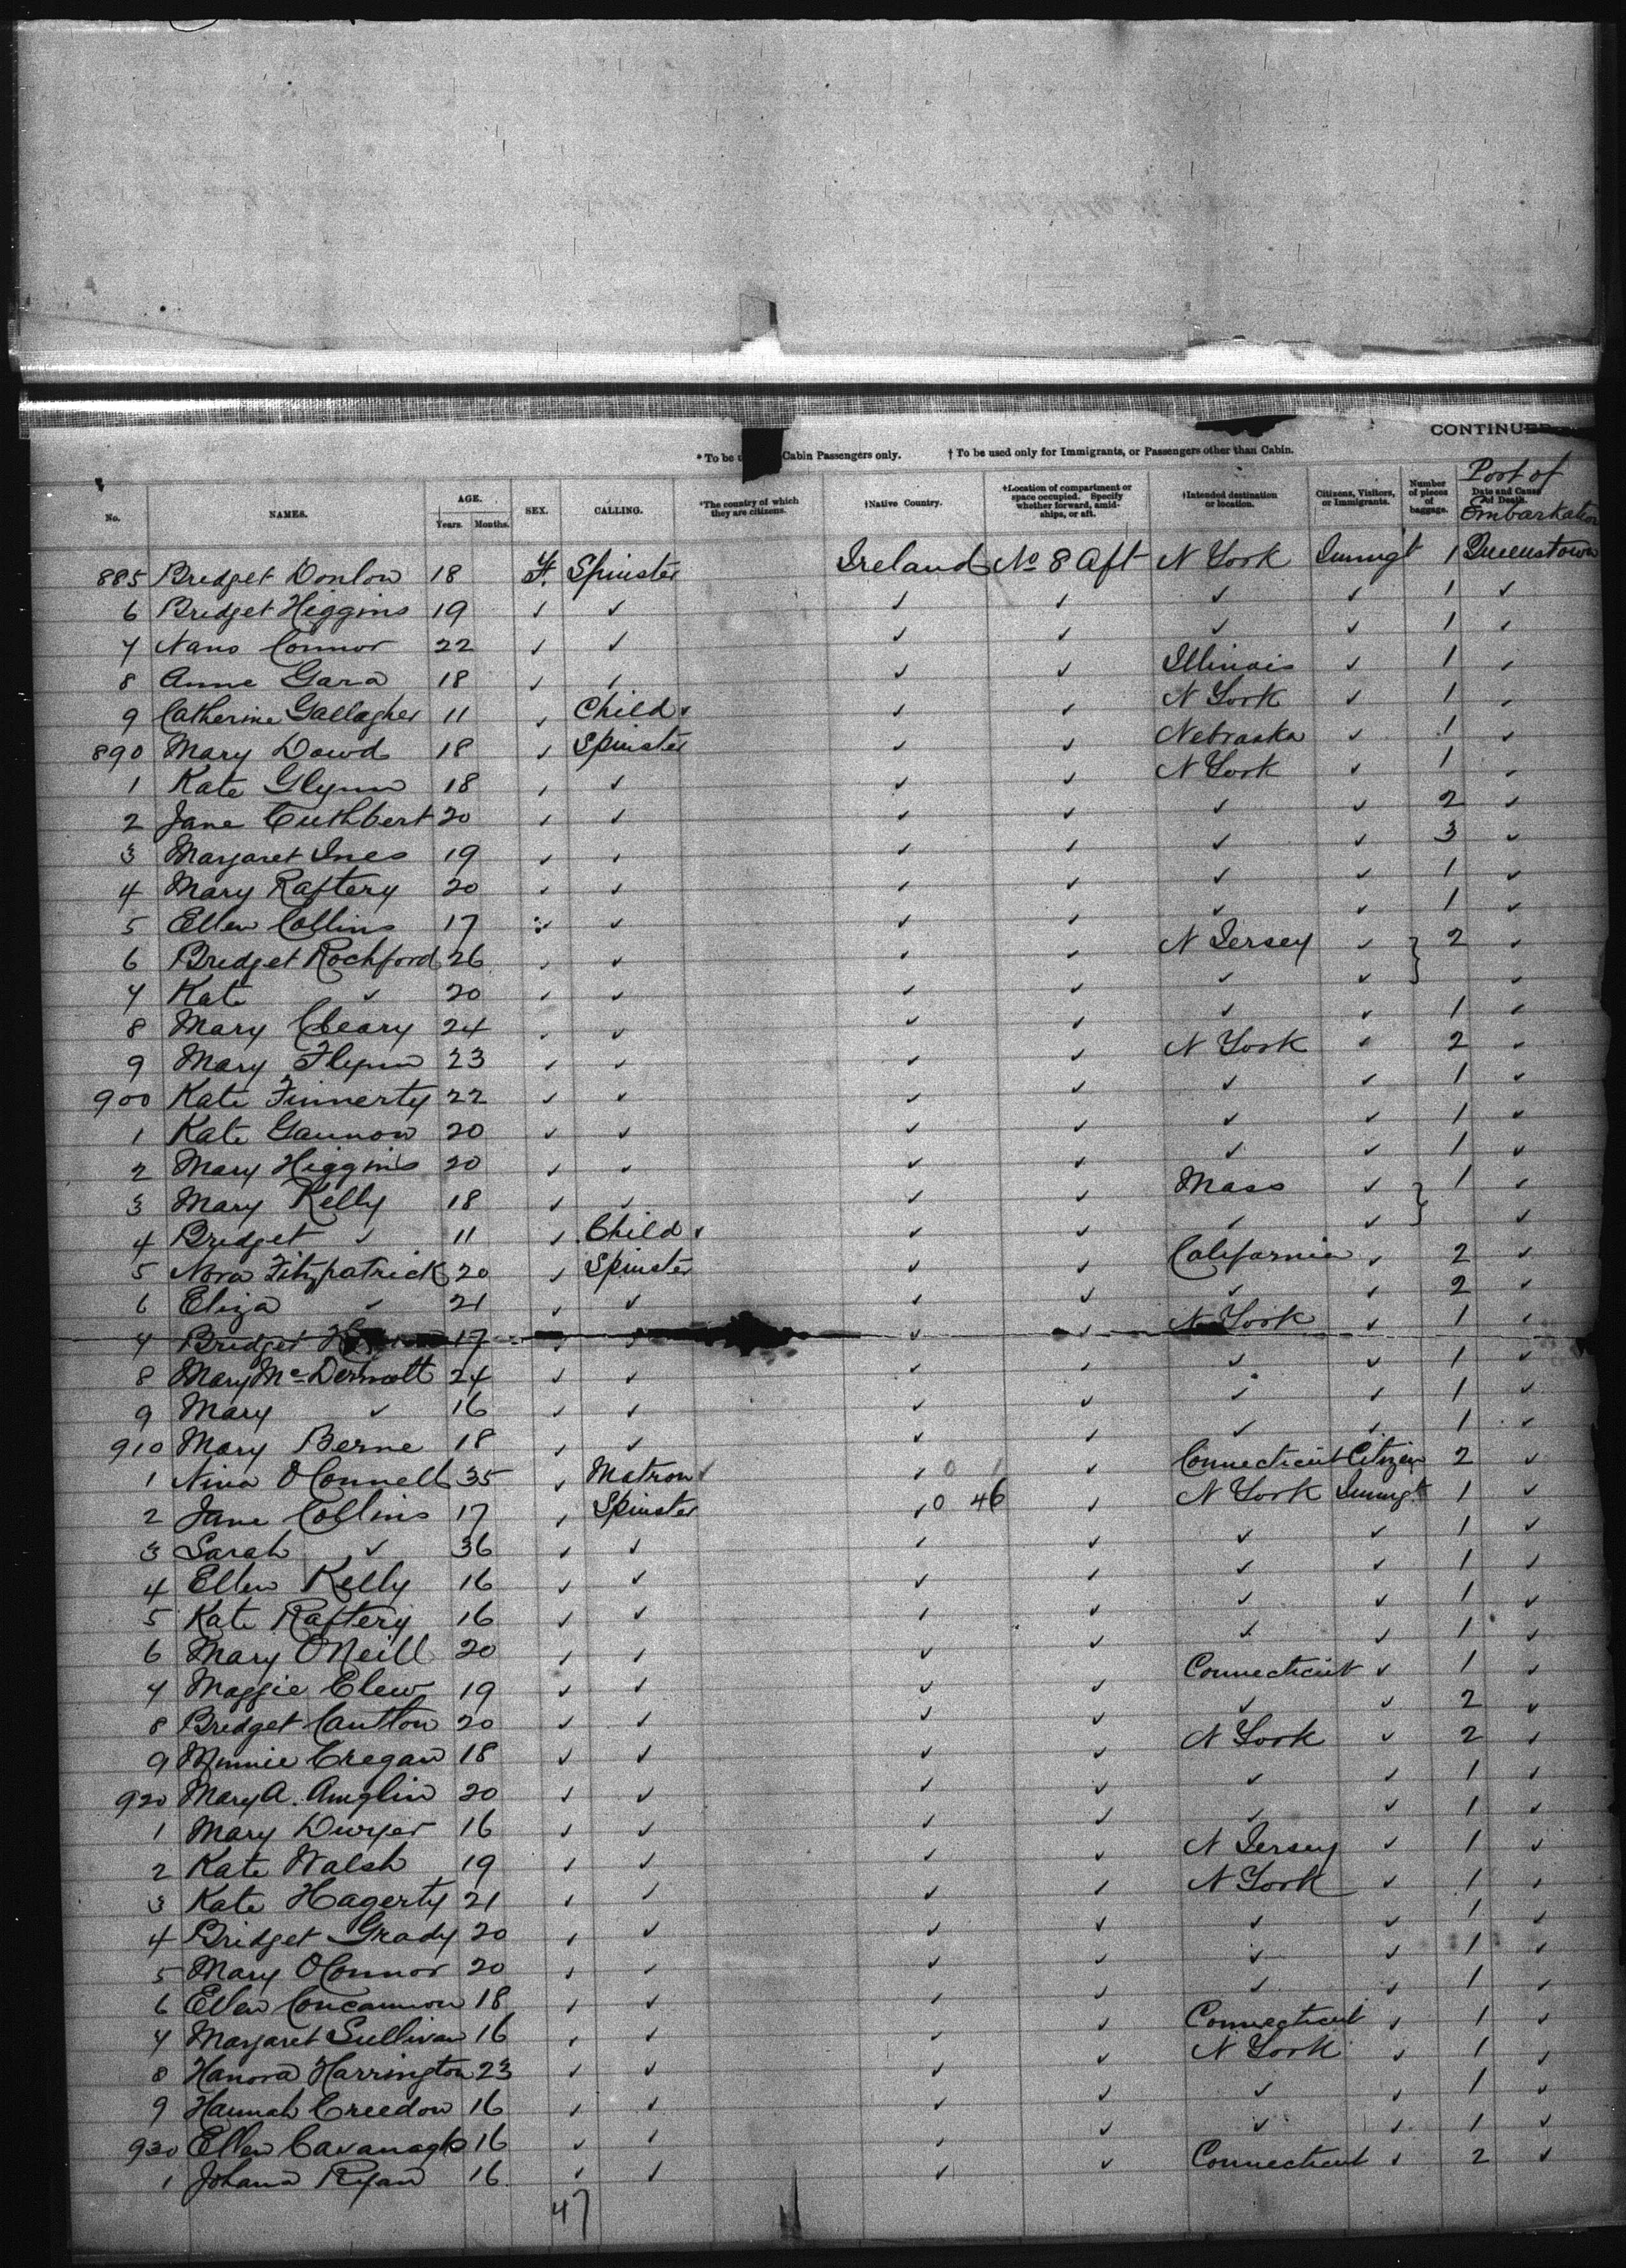 CONTINUED
* To be Cabin Passengers only. † To be used only for Immigrants, or Passengers other than Cabin.
No. NAMES. AGE. Years. Months. SEX. CALLING. *The country of which they are citizens. †Native Country. †Location of compartment or space occupied. Specify whether forward, amidships, or aft. †Intended destination or location. Citizens, Visitors, or Immigrants. Number of pieces of baggage. Date and Cause of Death. Port of Embarkation
885 Bridget Donlon 18 F. Spinster Ireland No 8 Aft N York Immigt 1 Queenstown
6 Bridget Higgins 19 ✓ ✓ ✓ ✓ ✓ ✓ 1 ✓
7 Nano Connor 22 ✓ ✓ ✓ ✓ ✓ ✓ 1 ✓
8 Anne Gara 18 ✓ ✓ ✓ ✓ Illinois ✓ 1 ✓
9 Catherine Gallagher 11 ✓ Child ✓ ✓ N York ✓ 1 ✓
890 Mary Dowd 18 ✓ Spinster ✓ ✓ Nebraska ✓ 1 ✓
1 Kate Glynn 18 ✓ ✓ ✓ ✓ N York ✓ 1 ✓
2 Jane Cuthbert 20 ✓ ✓ ✓ ✓ ✓ ✓ 2 ✓
3 Margaret Ines 19 ✓ ✓ ✓ ✓ ✓ ✓ 3 ✓
4 Mary Raftery 20 ✓ ✓ ✓ ✓ ✓ ✓ 1 ✓
5 Ellen Collins 17 ✓ ✓ ✓ ✓ ✓ ✓ 1 ✓
6 Bridget Rochford 26 ✓ ✓ ✓ ✓ N Jersey ✓ } 2 ✓
7 Kate ✓ 20 ✓ ✓ ✓ ✓ ✓ ✓ ✓
8 Mary Cleary 24 ✓ ✓ ✓ ✓ ✓ ✓ 1 ✓
9 Mary Flynn 23 ✓ ✓ ✓ ✓ N York ✓ 2 ✓
900 Kate Finnerty 22 ✓ ✓ ✓ ✓ ✓ ✓ 1 ✓
1 Kate Gannon 20 ✓ ✓ ✓ ✓ ✓ ✓ 1 ✓
2 Mary Higgins 20 ✓ ✓ ✓ ✓ ✓ ✓ 1 ✓
3 Mary Kelly 18 ✓ ✓ ✓ ✓ Mass ✓ } 1 ✓
4 Bridget ✓ 11 ✓ Child ✓ ✓ ✓ ✓ ✓
5 Nora Fitzpatrick 20 ✓ Spinster ✓ ✓ California ✓ 2 ✓
6 Eliza ✓ 21 ✓ ✓ ✓ ✓ ✓ ✓ 2 ✓
7 Bridget 17 ✓ ✓ ✓ ✓ N York ✓ 1 ✓
8 Mary McDermott 24 ✓ ✓ ✓ ✓ ✓ ✓ 1 ✓
9 Mary ✓ 16 ✓ ✓ ✓ ✓ ✓ ✓ 1 ✓
910 Mary Berne 18 ✓ ✓ ✓ ✓ ✓ ✓ 1 ✓
1 Nina O'Connell 35 ✓ Matron ✓ 0 1 ✓ Connecticut Citizen 2 ✓
2 Jane Collins 17 ✓ Spinster ✓ 0 46 ✓ N York Immigt 1 ✓
3 Sarah ✓ 36 ✓ ✓ ✓ ✓ ✓ ✓ 1 ✓
4 Ellen Kelly 16 ✓ ✓ ✓ ✓ ✓ ✓ 1 ✓
5 Kate Raftery 16 ✓ ✓ ✓ ✓ ✓ ✓ 1 ✓
6 Mary O'Neill 20 ✓ ✓ ✓ ✓ ✓ ✓ 1 ✓
7 Maggie Clew 19 ✓ ✓ ✓ ✓ Connecticut ✓ 1 ✓
8 Bridget Cantton 20 ✓ ✓ ✓ ✓ ✓ ✓ 2 ✓
9 Minnie Cregan 18 ✓ ✓ ✓ ✓ N York ✓ 2 ✓
920 Mary A. Anglin 20 ✓ ✓ ✓ ✓ ✓ ✓ 1 ✓
1 Mary Dwyer 16 ✓ ✓ ✓ ✓ ✓ ✓ 1 ✓
2 Kate Walsh 19 ✓ ✓ ✓ ✓ N Jersey ✓ 1 ✓
3 Kate Hagerty 21 ✓ ✓ ✓ ✓ N York ✓ 1 ✓
4 Bridget Grady 20 ✓ ✓ ✓ ✓ ✓ ✓ 1 ✓
5 Mary O'Connor 20 ✓ ✓ ✓ ✓ ✓ ✓ 1 ✓
6 Ellen Concannon 18 ✓ ✓ ✓ ✓ ✓ ✓ 1 ✓
7 Margaret Sullivan 16 ✓ ✓ ✓ ✓ Connecticut ✓ 1 ✓
8 Hanora Harrington 23 ✓ ✓ ✓ ✓ N York ✓ 1 ✓
9 Hannah Creedon 16 ✓ ✓ ✓ ✓ ✓ ✓ 1 ✓
930 Ellen Cavanagh 16 ✓ ✓ ✓ ✓ ✓ ✓ 1 ✓
1 Johana Ryan 16 ✓ ✓ ✓ ✓ Connecticut ✓ 2 ✓
47